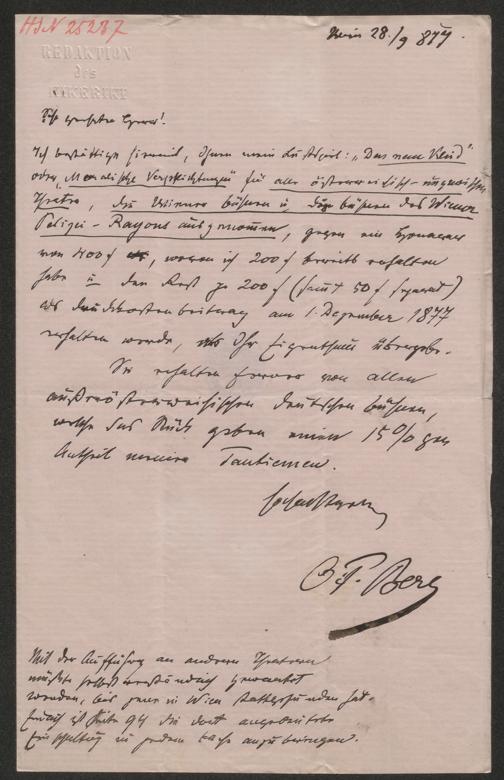 HIN 25287
Wien 28./9 877.
REDAKTION
des
KIKERIKI
Sehr geehrter Herr!
Ich bestätige hiermit, Ihnen mein Lustspiel: „Das neue Kleid"
oder „Moralische Verpflichtungen" für alle österreichisch-ungarischen
Theater, die Wiener Bühnen u. die Bühnen des Wiener
Polizei-Rayons ausgenommen, gegen ein Honorar
von 400 f, wovon ich 200 f bereits erhalten
habe u den Rest zu 200 f (sammt 50 f separat)
als Druckkostenbeitrag am 1. Dezember 1877
erhalten werde, als Ihr Eigenthum übergebe.
Sie erhalten ferner von allen
außerösterreichischen deutschen Bühnen,
welche das Stück geben einen 15%gen
Antheil meiner Tantiemen.
Hochachtungsvoll
O. F. Berg
Mit der Aufführung an anderen Theatern
müßte selbstverständlich gewartet
werden, bis jene in Wien stattgefunden hat.
ist Seite 94 die dort angedeutete
Einschaltung in jedem anzubringen.